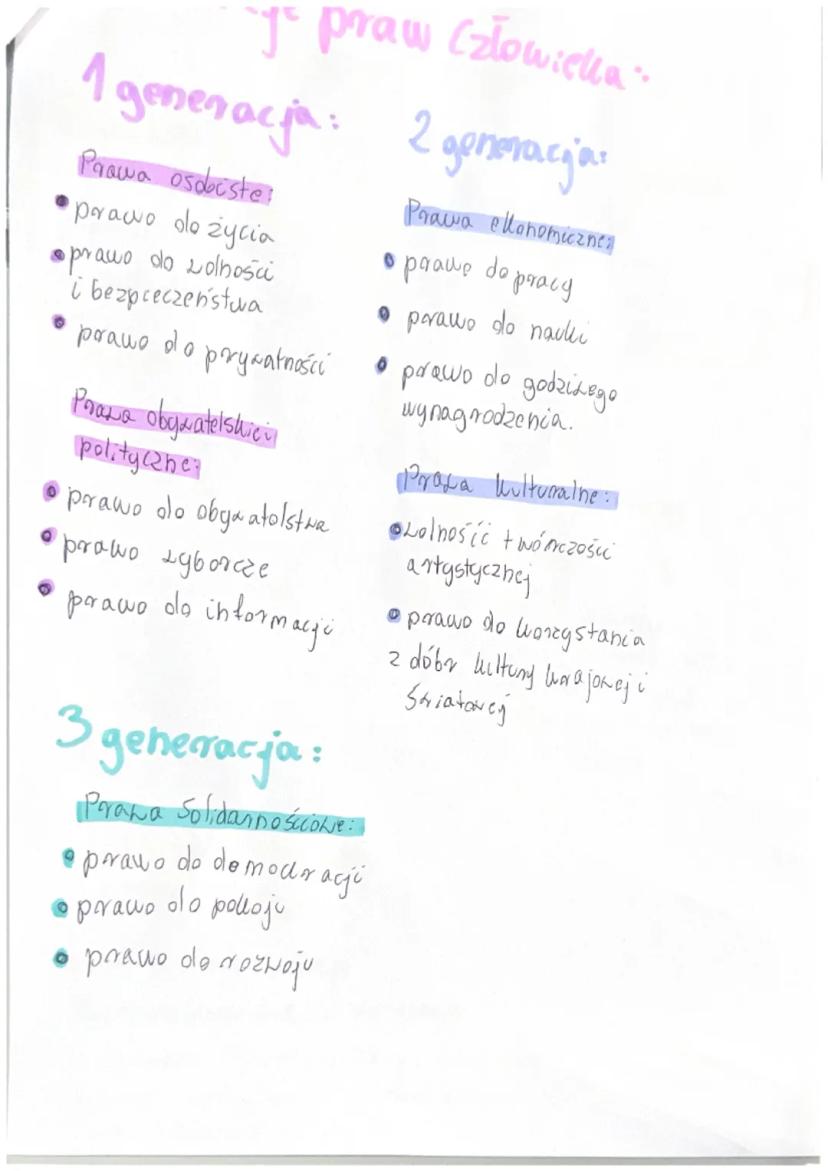 praw człowieka:
1 generacja:
Prawa osobiste:
prawo do życia
prawo do wolności
i bezpieczeństwa
prawo do prywatności
Prawa obywatelskie i
polityczne:
prawo do obywatelstwa
prawo wyborcze
prawo do informacji
2 generacja:
Prawa ekonomiczne:
prawo do pracy
prawo do nauki
prawo do godziwego
wynagrodzenia.
Prawa kulturalne:
wolność twórczości
artystycznej
prawo do korzystania
z dóbr kultury krajowej i
światowej
3 generacja:
Prawa Solidarnościowe:
prawo do demokracji
prawo do pokoju
prawo do rozwoju